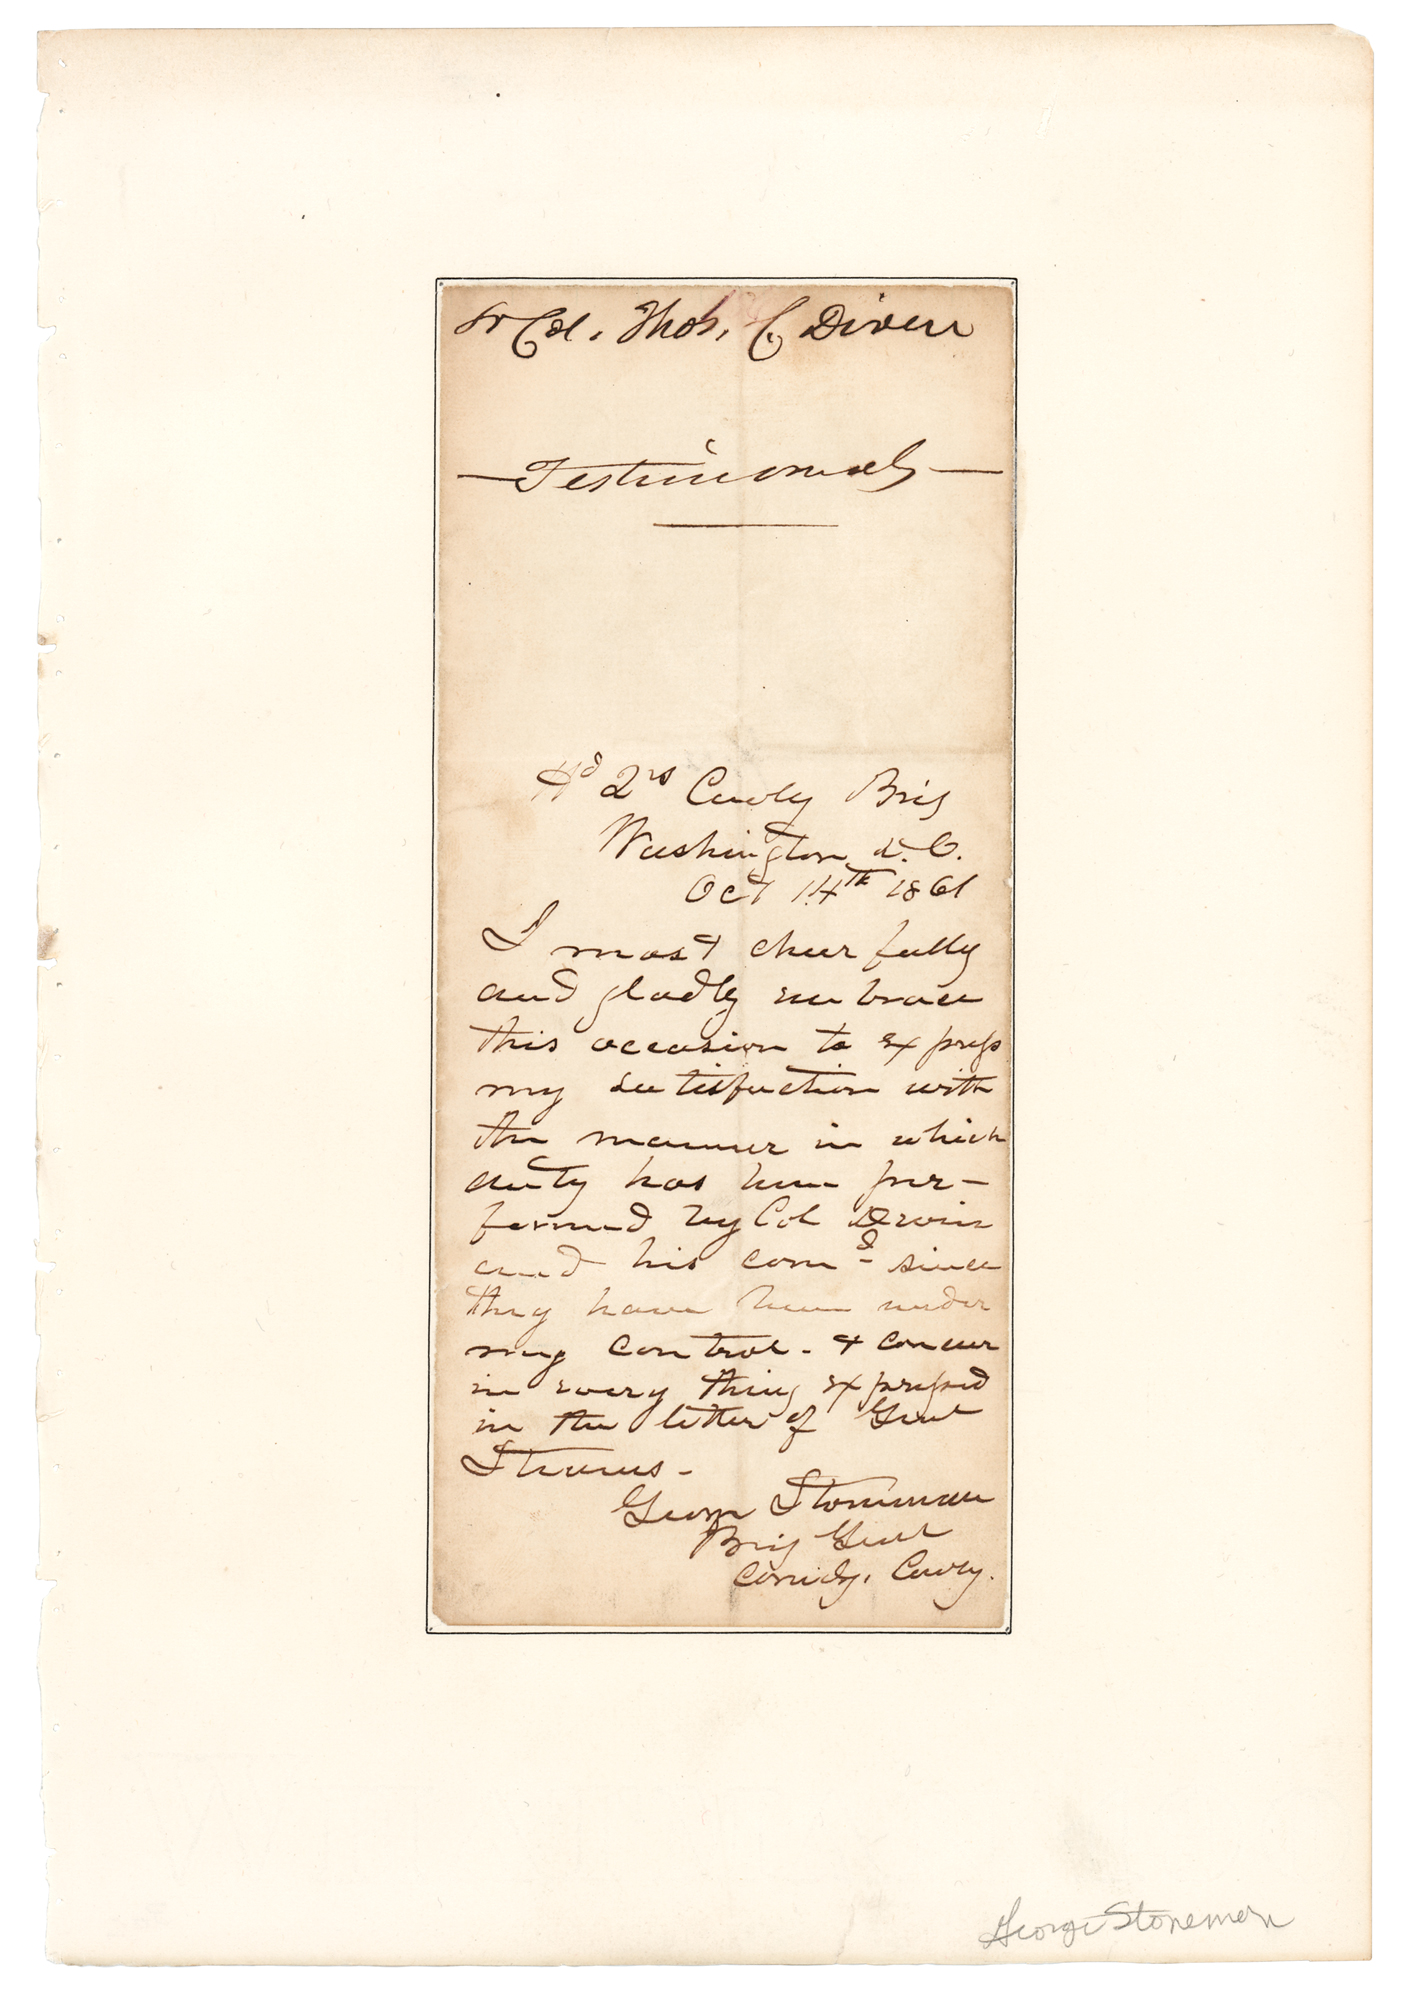 Lt Col. Thos. C Diven
—Testimonials—
Hd Qrs Cavly Brig
Washington D.C.
Oct 14th 1861
I most cheerfully
and gladly embrace
this occasion to express
my satisfaction with
the manner in which
duty has been per-
formed by Col Devin
and his comd since
they have been under
my control. & concur
in every thing expressed
in the letter of Genl
George Stoneman
Brig Genl
Comdg. Cavly.
George Stoneman